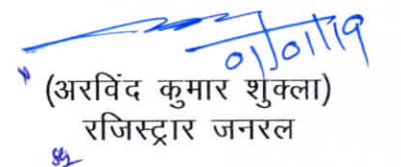 01/01/19
(अरविंद कुमार शुक्ला)
रजिस्ट्रार जनरल